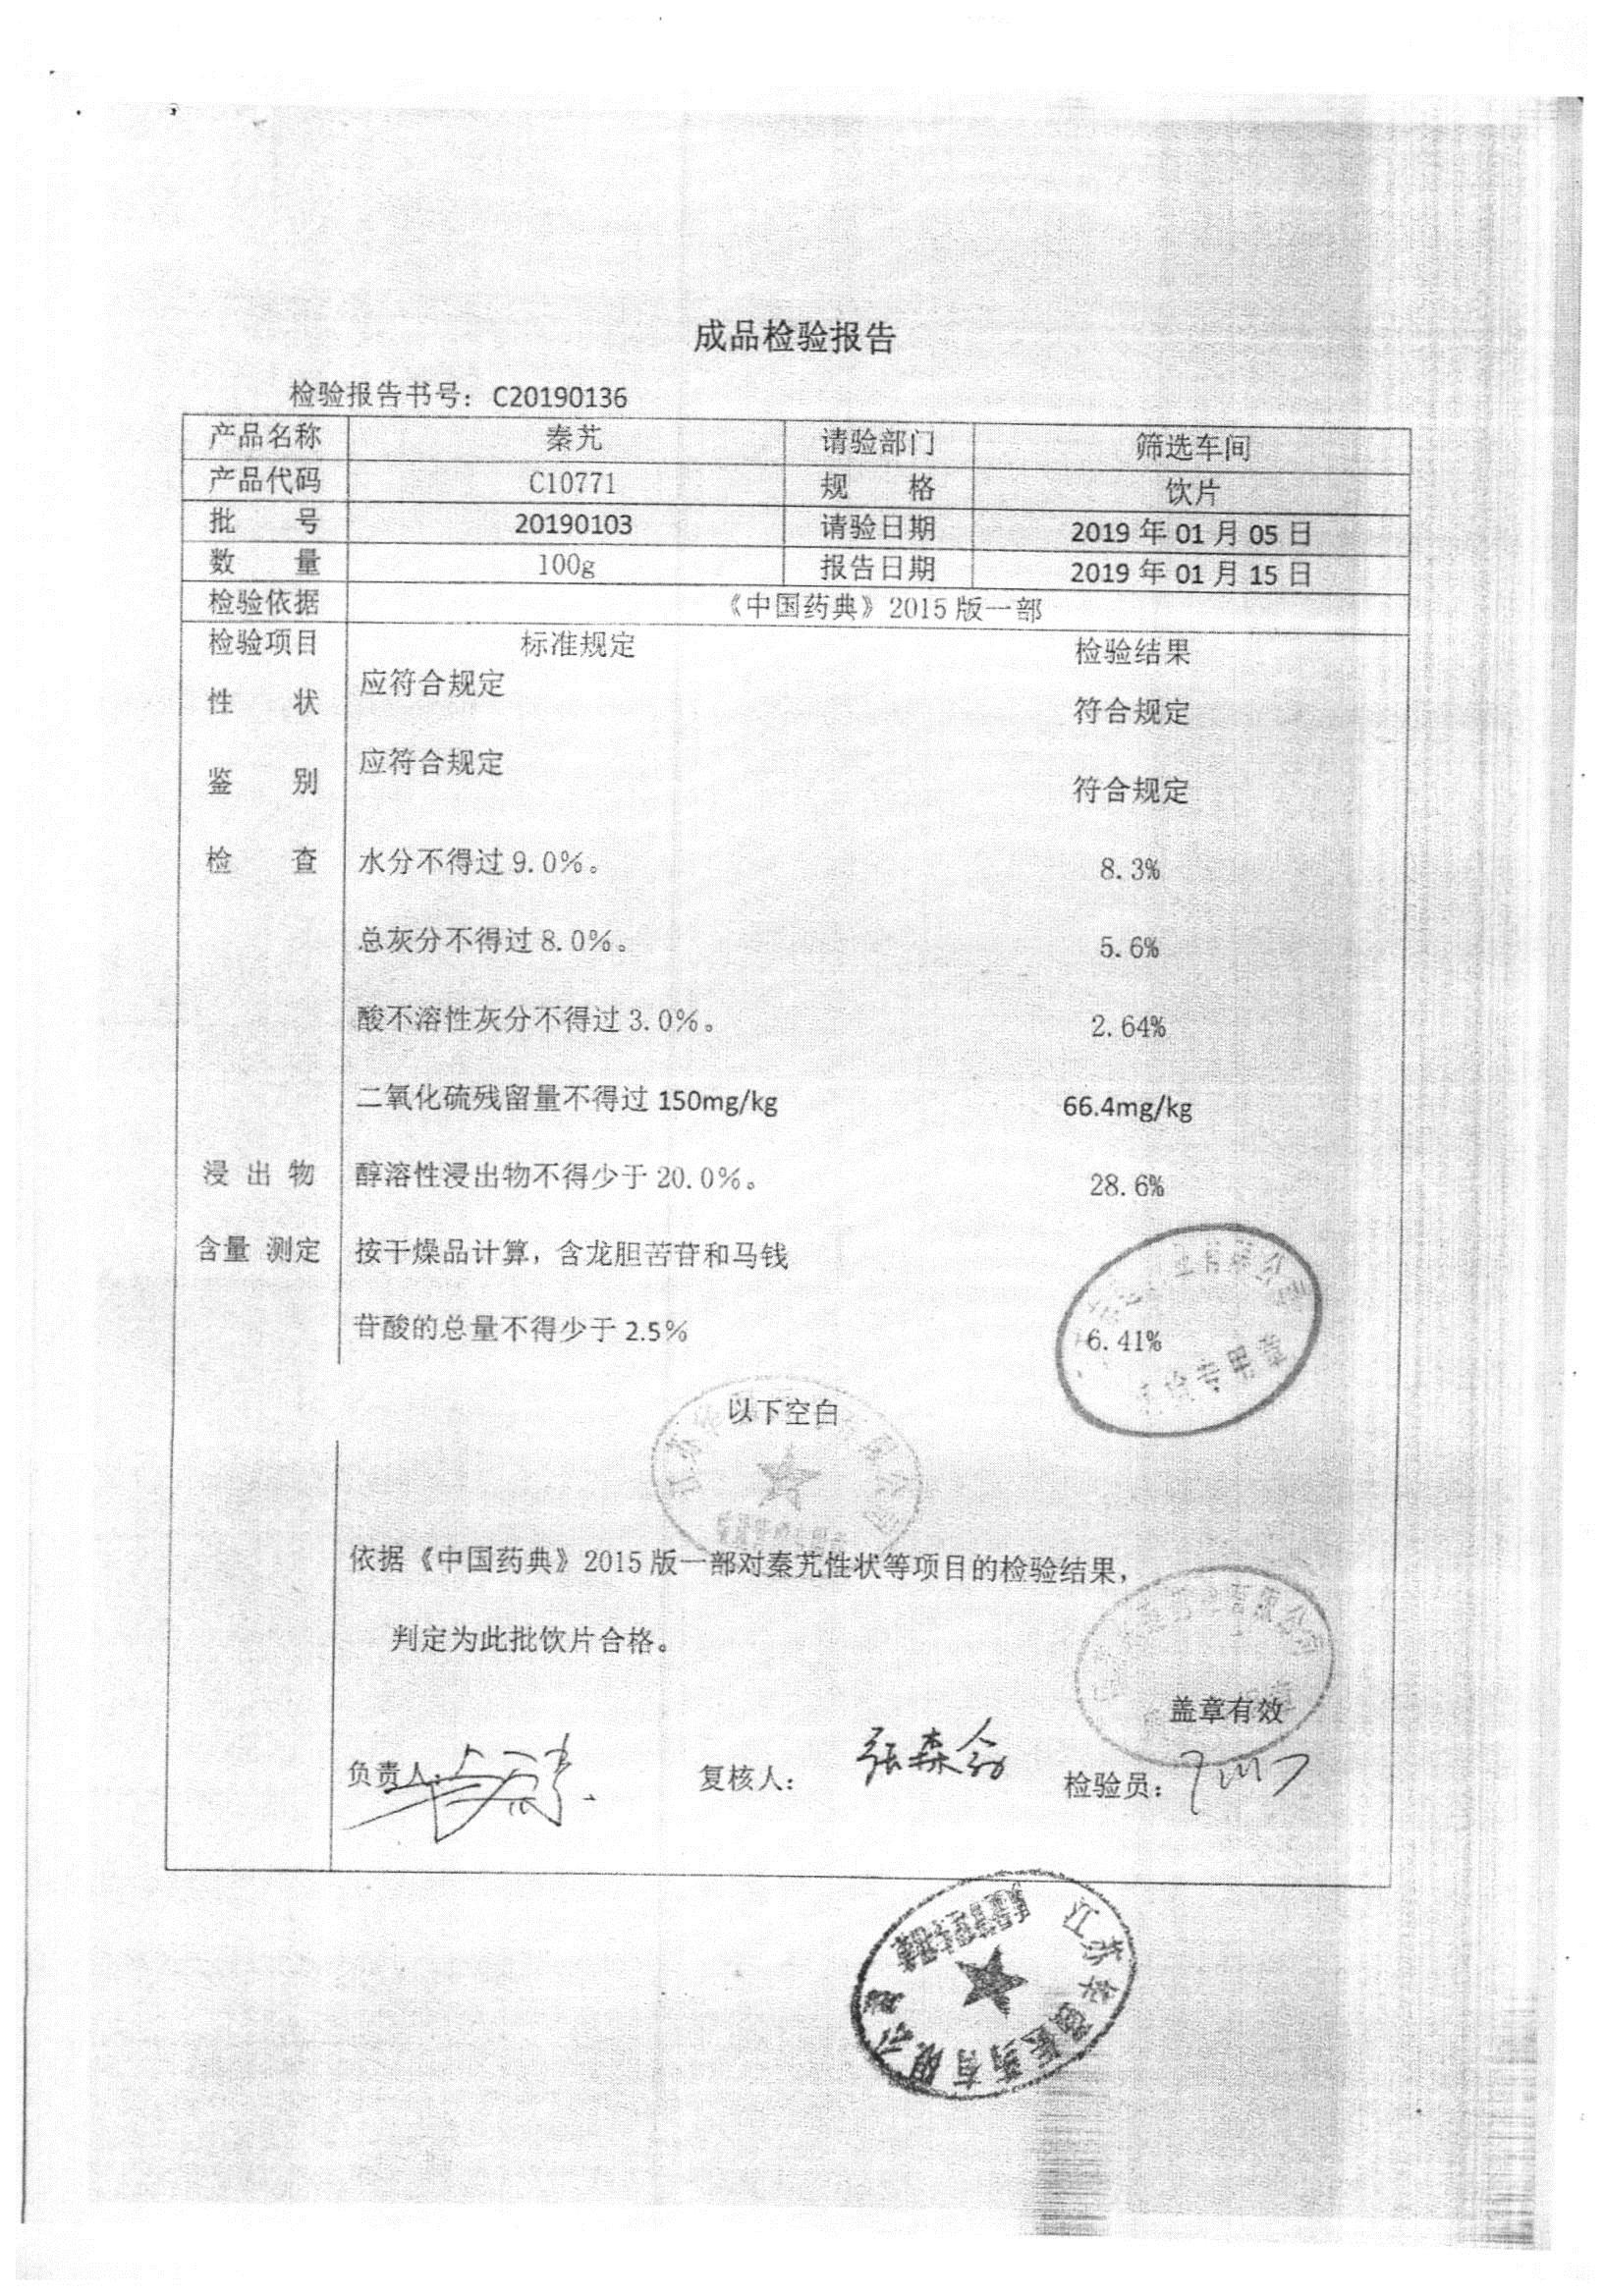 成品检验报告
检验报告书号：C20190136
产品名称 秦艽 请验部门 筛选车间
产品代码 C10771 规 格 饮片
批 号 20190103 请验日期 2019 年 01 月 05 日
数 量 100g 报告日期 2019 年 01 月 15 日
检验依据 《中国药典》2015 版一部
检验项目 标准规定 检验结果
性 状 应符合规定 符合规定
鉴 别 应符合规定 符合规定
检 查 水分不得过 9.0%。 8.3%
总灰分不得过 8.0%。 5.6%
酸不溶性灰分不得过 3.0%。 2.64%
二氧化硫残留量不得过 150mg/kg 66.4mg/kg
浸 出 物 醇溶性浸出物不得少于 20.0%。 28.6%
含量 测定 按干燥品计算，含龙胆苦苷和马钱
苷酸的总量不得少于 2.5% 6.41%
业有限公司
专用章
以下空白
江苏 限公司
依据《中国药典》2015 版一部对秦艽性状等项目的检验结果，
判定为此批饮片合格。
有限公司
盖章有效
负责人： 复核人： 张森 检验员：
江苏 医药有限公司